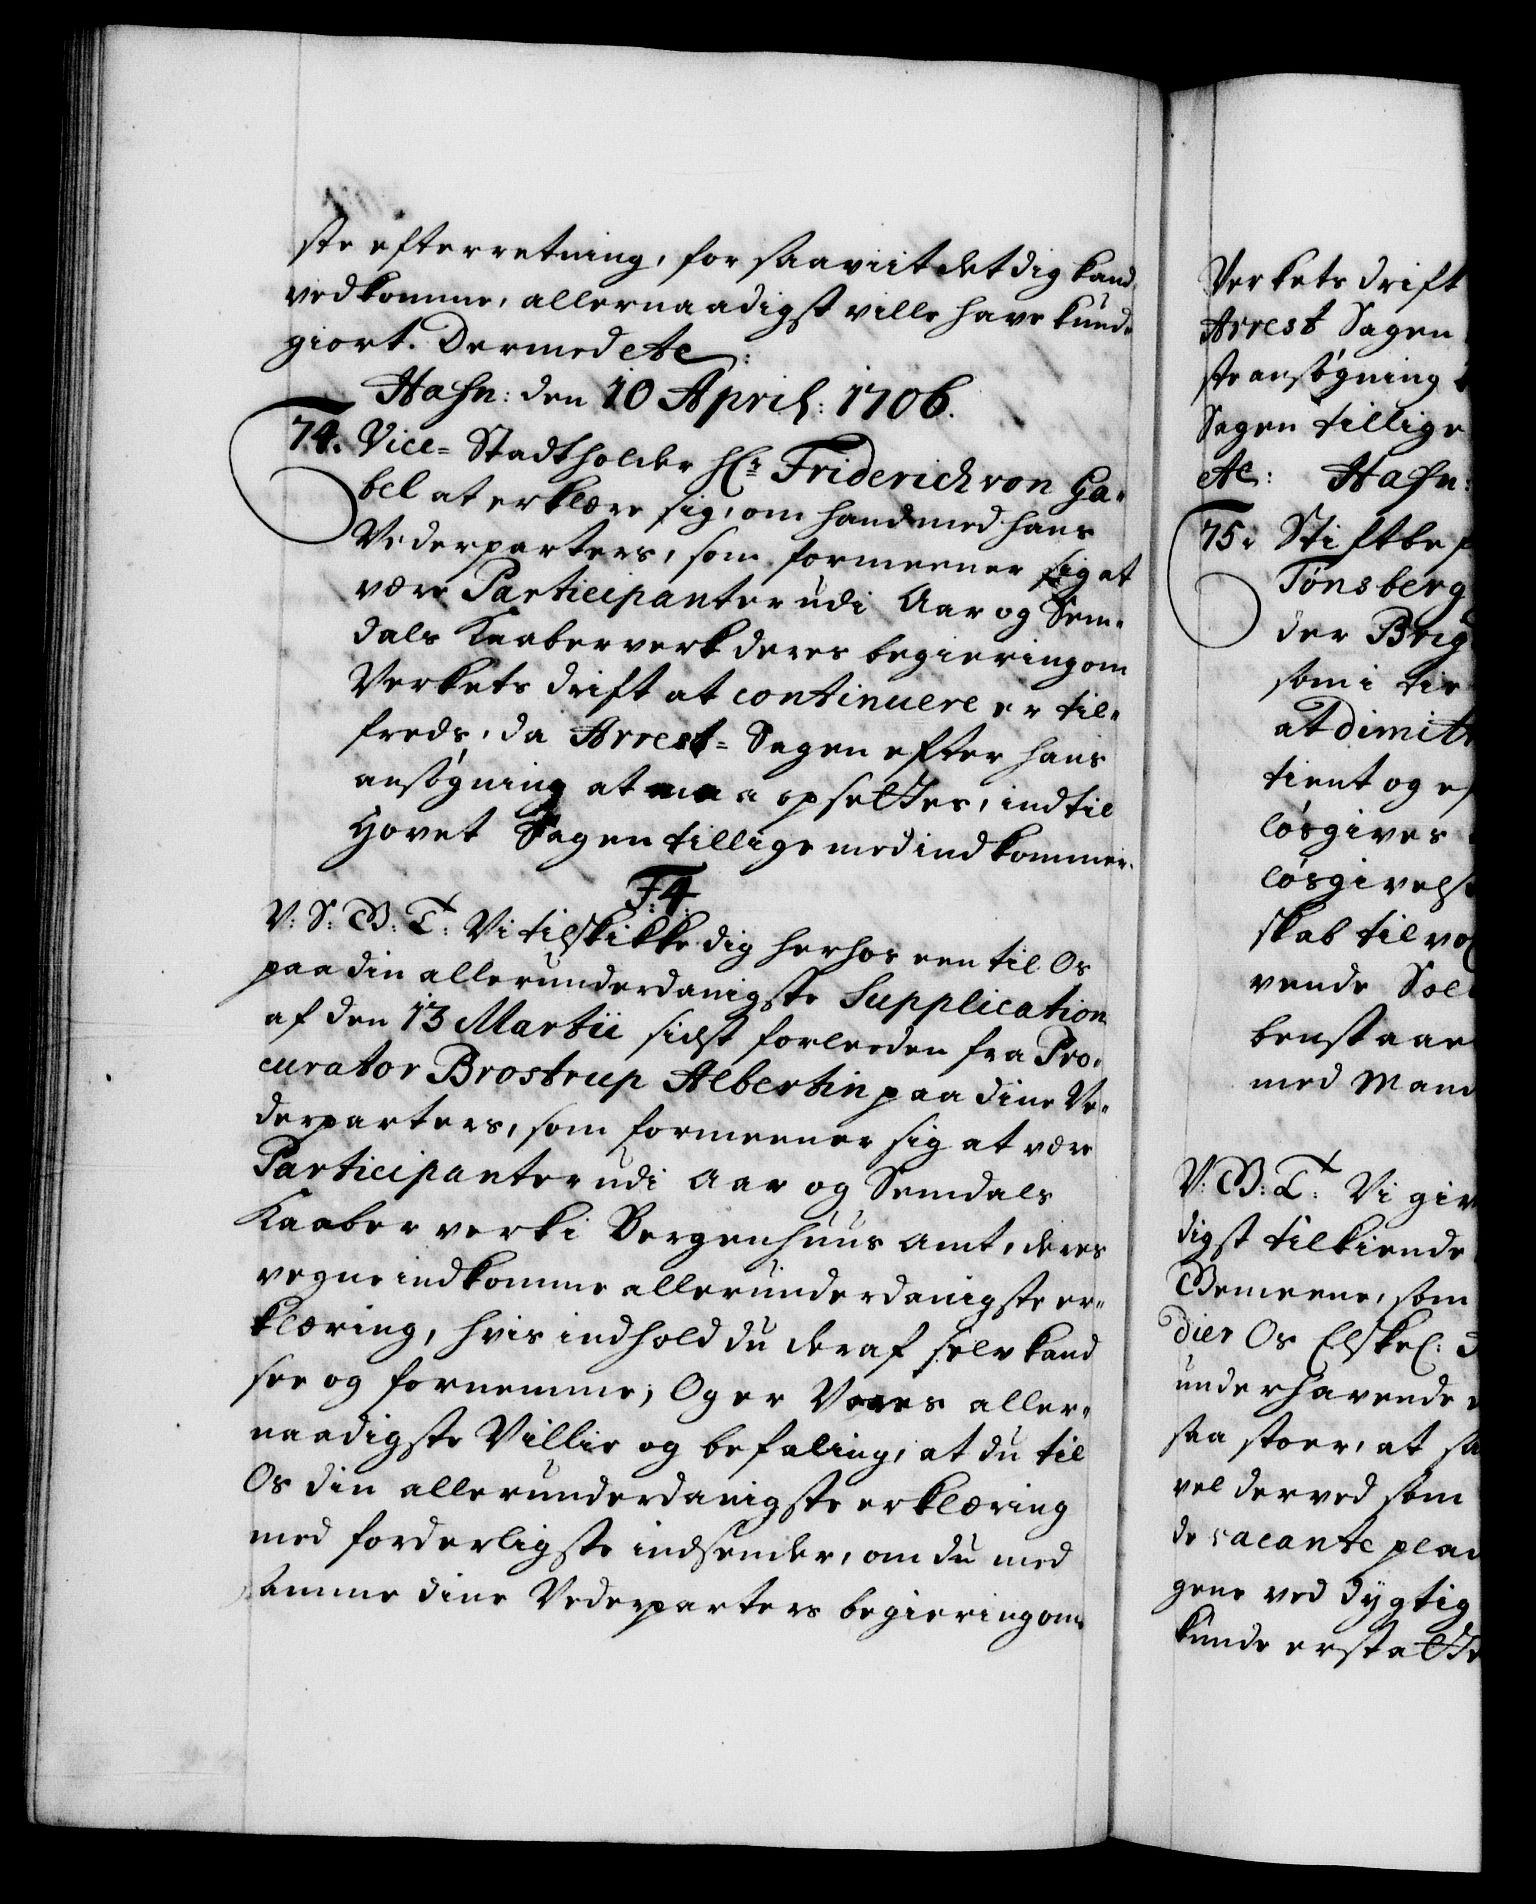 ste efterretning, for saaviit det dig kand
vedkomme, allernaadigst ville have kund-
giort. Dermed etc:
Hafn: den 10 April: 1706.
74. Vice- Stadtholder Hr Friderich von Ga-
bel at erklære sig, om hand med hans
Vederparters, som formeener sig at
være Participanter udi Aar og Sem-
dals Kaaberverk deres begiering om
Verkets drift at continuere er til-
freds, da Arrest- Sagen efter hans
ansøgning at maa opsettes, indtil
Hovet Sagen tillige med indkommer.
F: 4.
V: S: G: T: Vi tilskikke dig herhos een til Os
paa din allerunderdanigste Supplication
af den 13 Martii sidst forleeden fra Pro-
curator Brostrup Albertin paa dine Ve-
derparters, som formeener sig at være
Participanter udi Aar og Semdals
Kaaberverk i Bergenhuus Amt, deres
vegne indkomme allerunderdanigste er-
klæring, hvis indhold du deraf selv kand
see og fornemme; Og er Vores aller-
naadigste Villie og befaling, at du til
Os din allerunderdanigste erklæring
med forderligste indsender, om du med
samme dine Vederparters begiering om
Verkets drift
Arrest Sagen
ste ansøgning
Sagen tillige
etc: Hafn:
75. Stiftbe
Tønsberg
der Brig
som i tie
at dimitt
tient og ef
løsgives
løsgivels
skab til vo
vende Sol
benstaae
med Mand
V: G: T: Vi giv
digst tilkiende
Gemeene, som
dier Os Elskel: d
underhavende
saa stoer, at sa
vel derved som
de vacante plad
gene ved dygtig
kunde erstatte